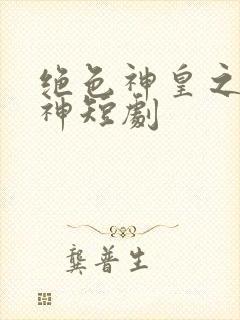 绝色神皇之
神短劇
龔普生